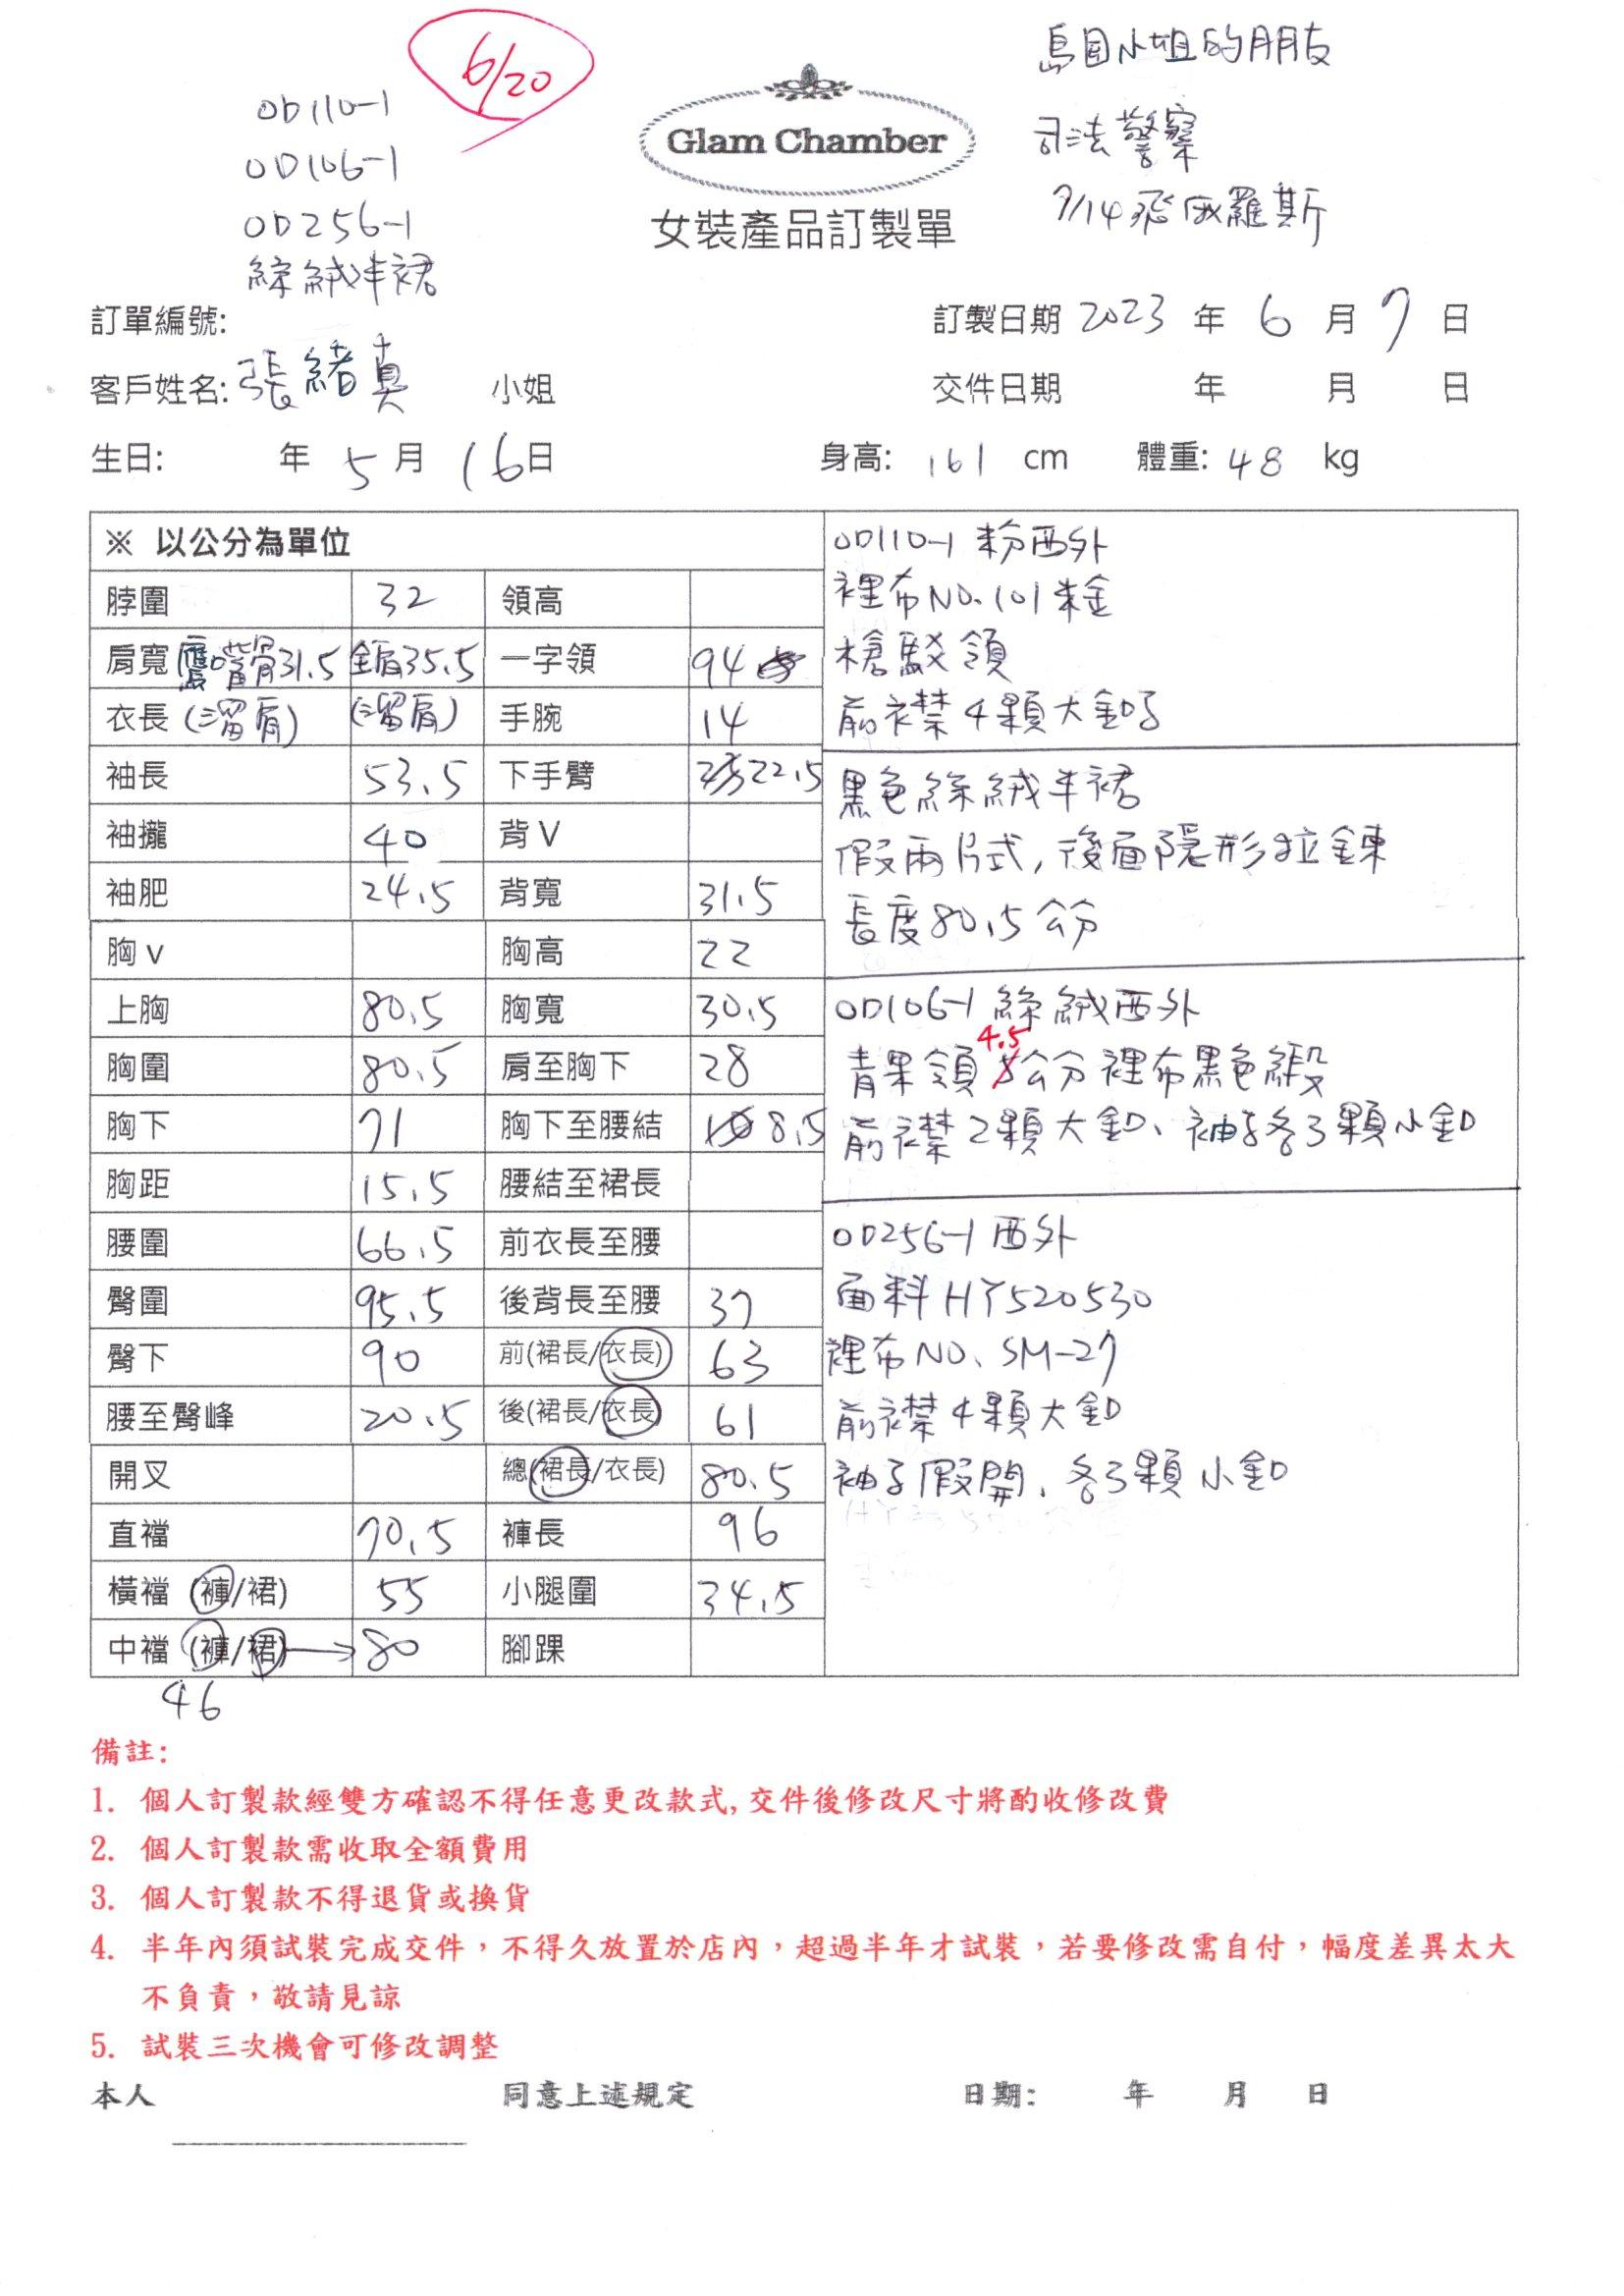 6/20
OD110-1
OD106-1
OD256-1
絲絨半裙
島國小姐的朋友
司法警察
7/14飛俄羅斯
Glam Chamber
女裝產品訂製單
訂單編號:
訂製日期 2023 年 6 月 7 日
客戶姓名: 張緒真 小姐
交件日期 年 月 日
生日: 年 5 月 16 日
身高: 161 cm 體重: 48 kg
※ 以公分為單位
脖圍 32 領高
肩寬 鷹嘴骨31.5 全肩35.5 一字領 94
衣長 (溜肩) (溜肩) 手腕 14
袖長 53.5 下手臂 22.5
袖攏 40 背V
袖肥 24.5 背寬 31.5
胸v 胸高 22
上胸 80.5 胸寬 30.5
胸圍 80.5 肩至胸下 28
胸下 71 胸下至腰結 8.5
胸距 15.5 腰結至裙長
腰圍 66.5 前衣長至腰
臀圍 95.5 後背長至腰 37
臀下 90 前(裙長/衣長) 63
腰至臀峰 20.5 後(裙長/衣長) 61
開叉 總(裙長/衣長) 80.5
直襠 70.5 褲長 96
橫襠 (褲/裙) 55 小腿圍 34.5
中襠 (褲/裙) 80 腳踝
46
OD110-1 粉西外
裡布NO.101朱金
槍駁領
前衣襟4顆大釦子
黑色絲絨半裙
假兩片式,後面隱形拉鍊
長度80.5公分
OD106-1 絲絨西外
青果領4.5公分 裡布黑色緞
前衣襟2顆大釦、袖子各3顆小釦
OD256-1 西外
面料HY520530
裡布NO、SM-27
前衣襟4顆大釦
袖子假開、各3顆小釦
備註:
1. 個人訂製款經雙方確認不得任意更改款式,交件後修改尺寸將酌收修改費
2. 個人訂製款需收取全額費用
3. 個人訂製款不得退貨或換貨
4. 半年內須試裝完成交件，不得久放置於店內，超過半年才試裝，若要修改需自付，幅度差異太大
不負責，敬請見諒
5. 試裝三次機會可修改調整
本人 同意上述規定 日期: 年 月 日